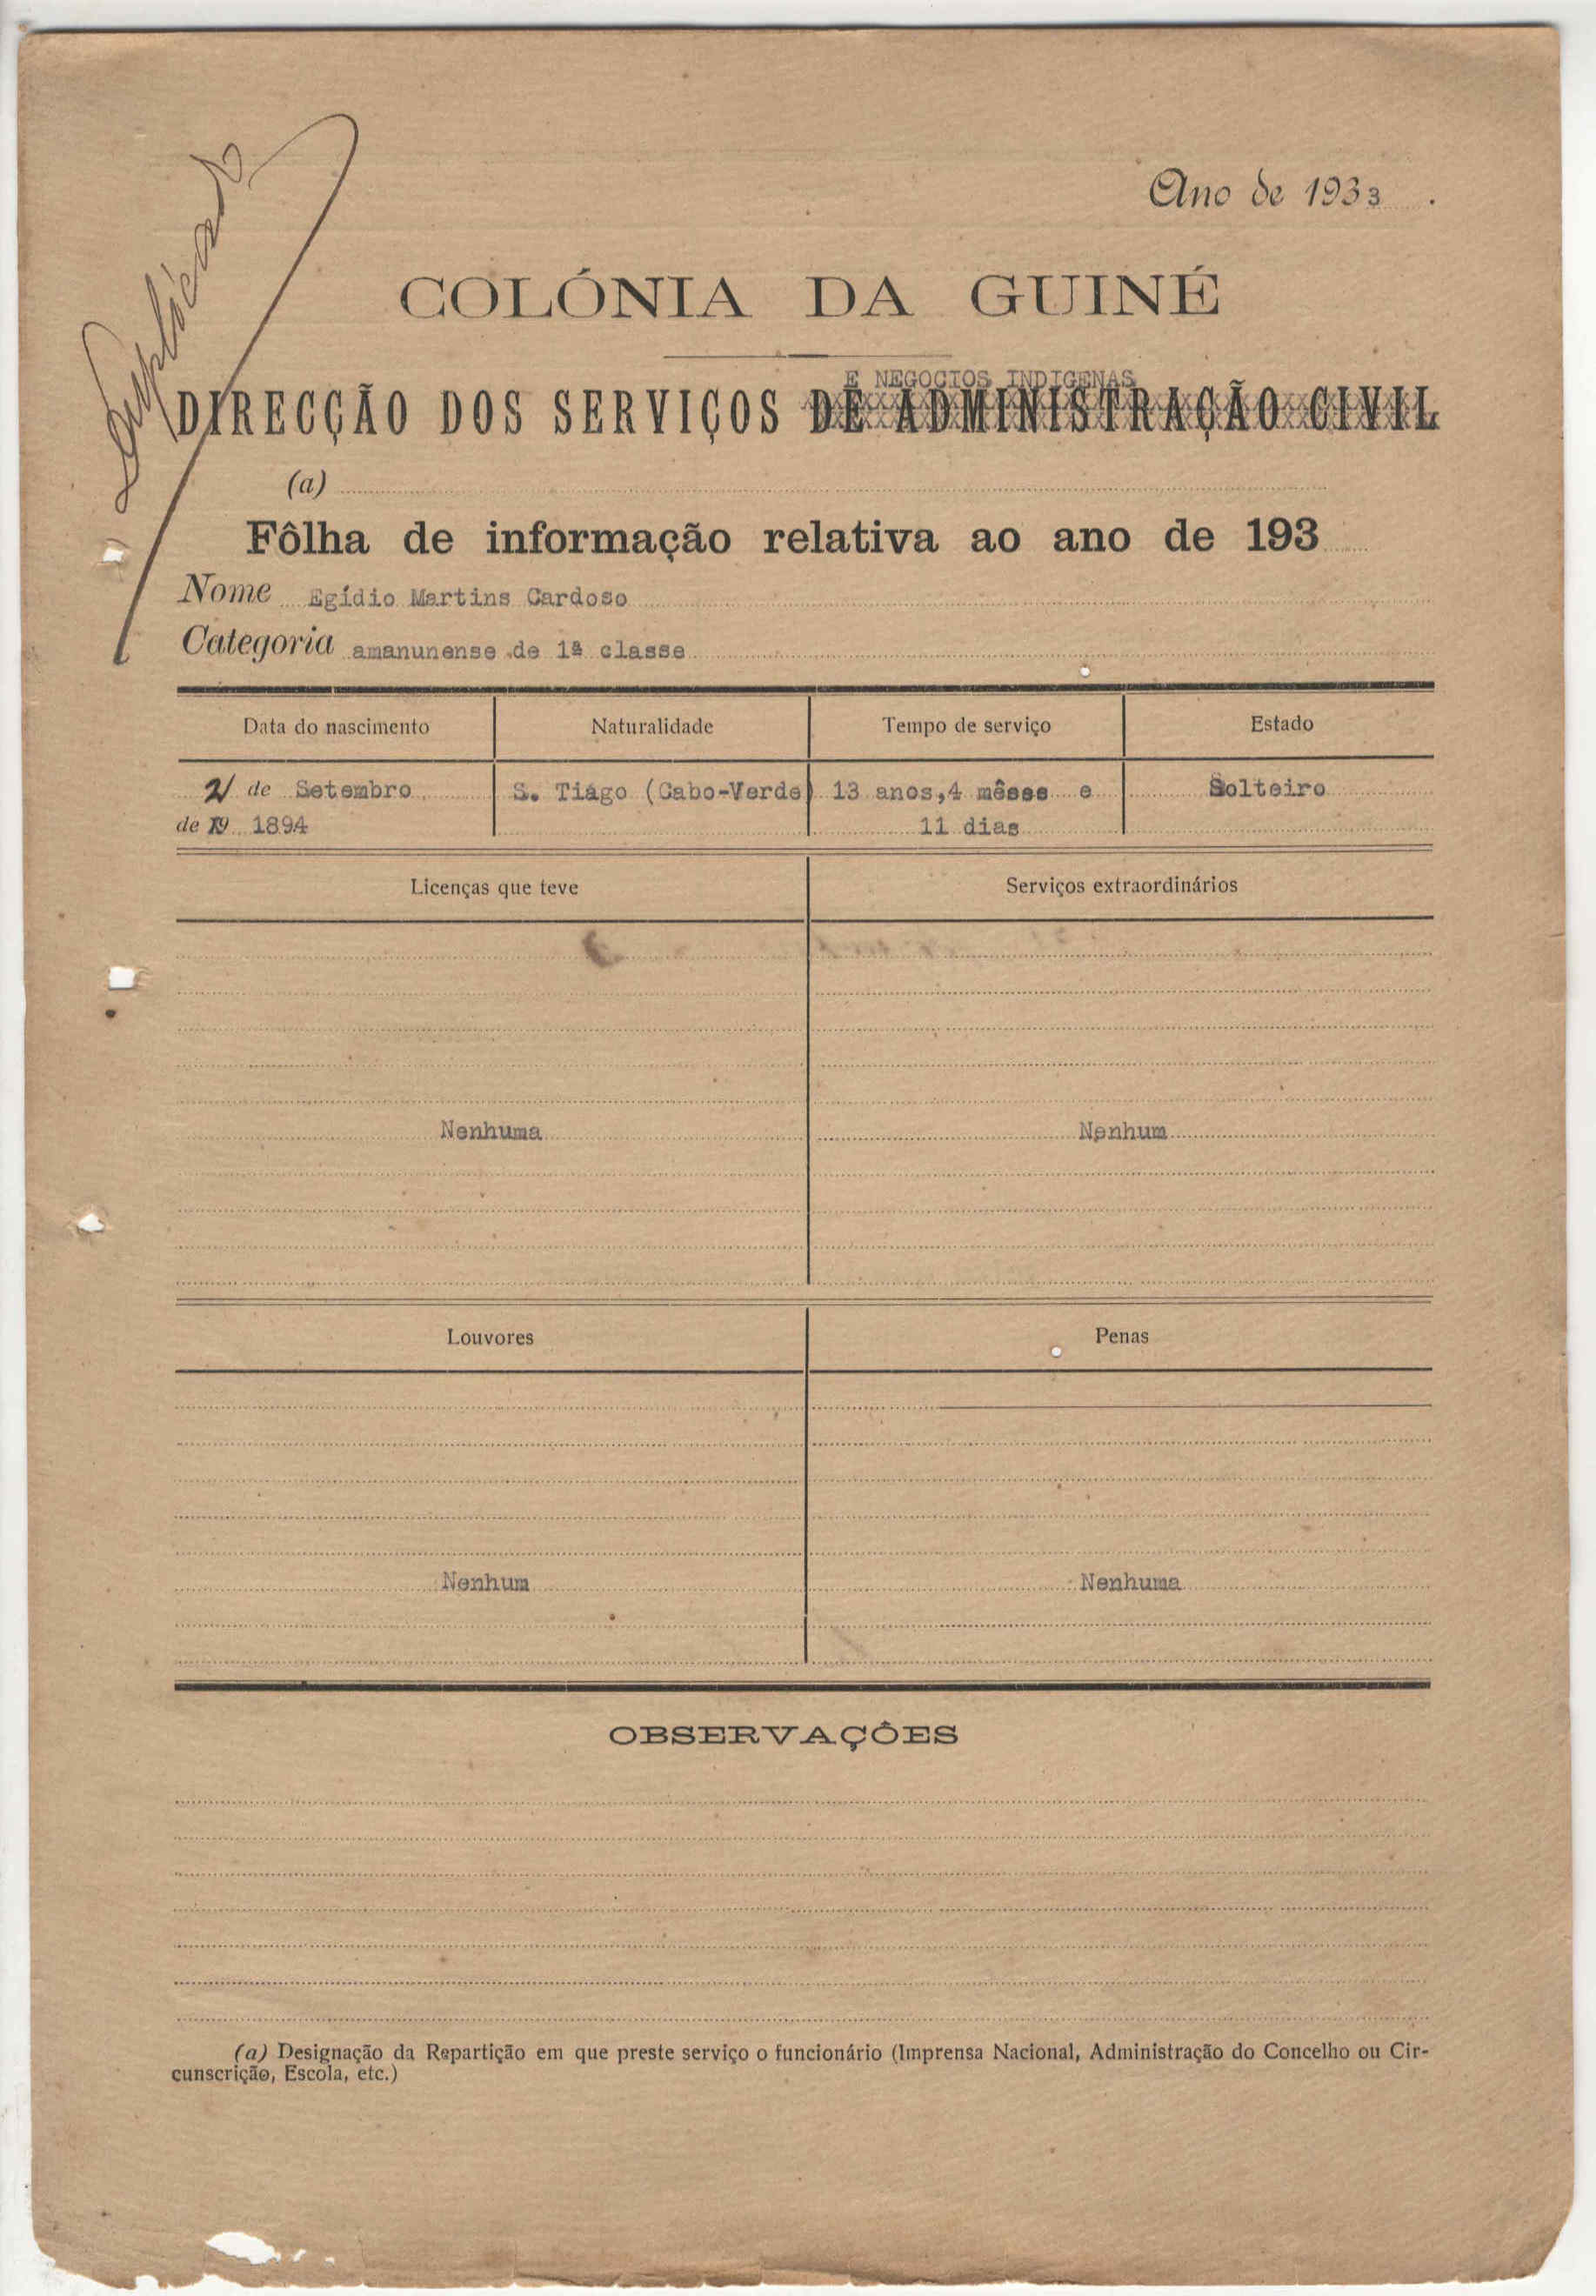 Duplicado
Ano de 1933 .
COLÓNIA DA GUINÉ
E NEGOCIOS INDIGENAS
DIRECÇÃO DOS SERVIÇOS DE ADMINISTRAÇÃO CIVIL
(a)
Fôlha de informação relativa ao ano de 193
Nome Egídio Martins Cardoso
Categoria amanunense de 1ª classe
Data do nascimento Naturalidade Tempo de serviço Estado
de Setembro S. Tiágo (Cabo-Verde) 13 anos,4 mêses e Solteiro
de 19 1894 11 dias
Licenças que teve Serviços extraordinários
Nenhuma Nenhum
Louvores Penas
Nenhum Nenhuma
OBSERVAÇÔES
(a) Designação da Repartição em que preste serviço o funcionário (Imprensa Nacional, Administração do Concelho ou Cir-
cunscrição, Escola, etc.)